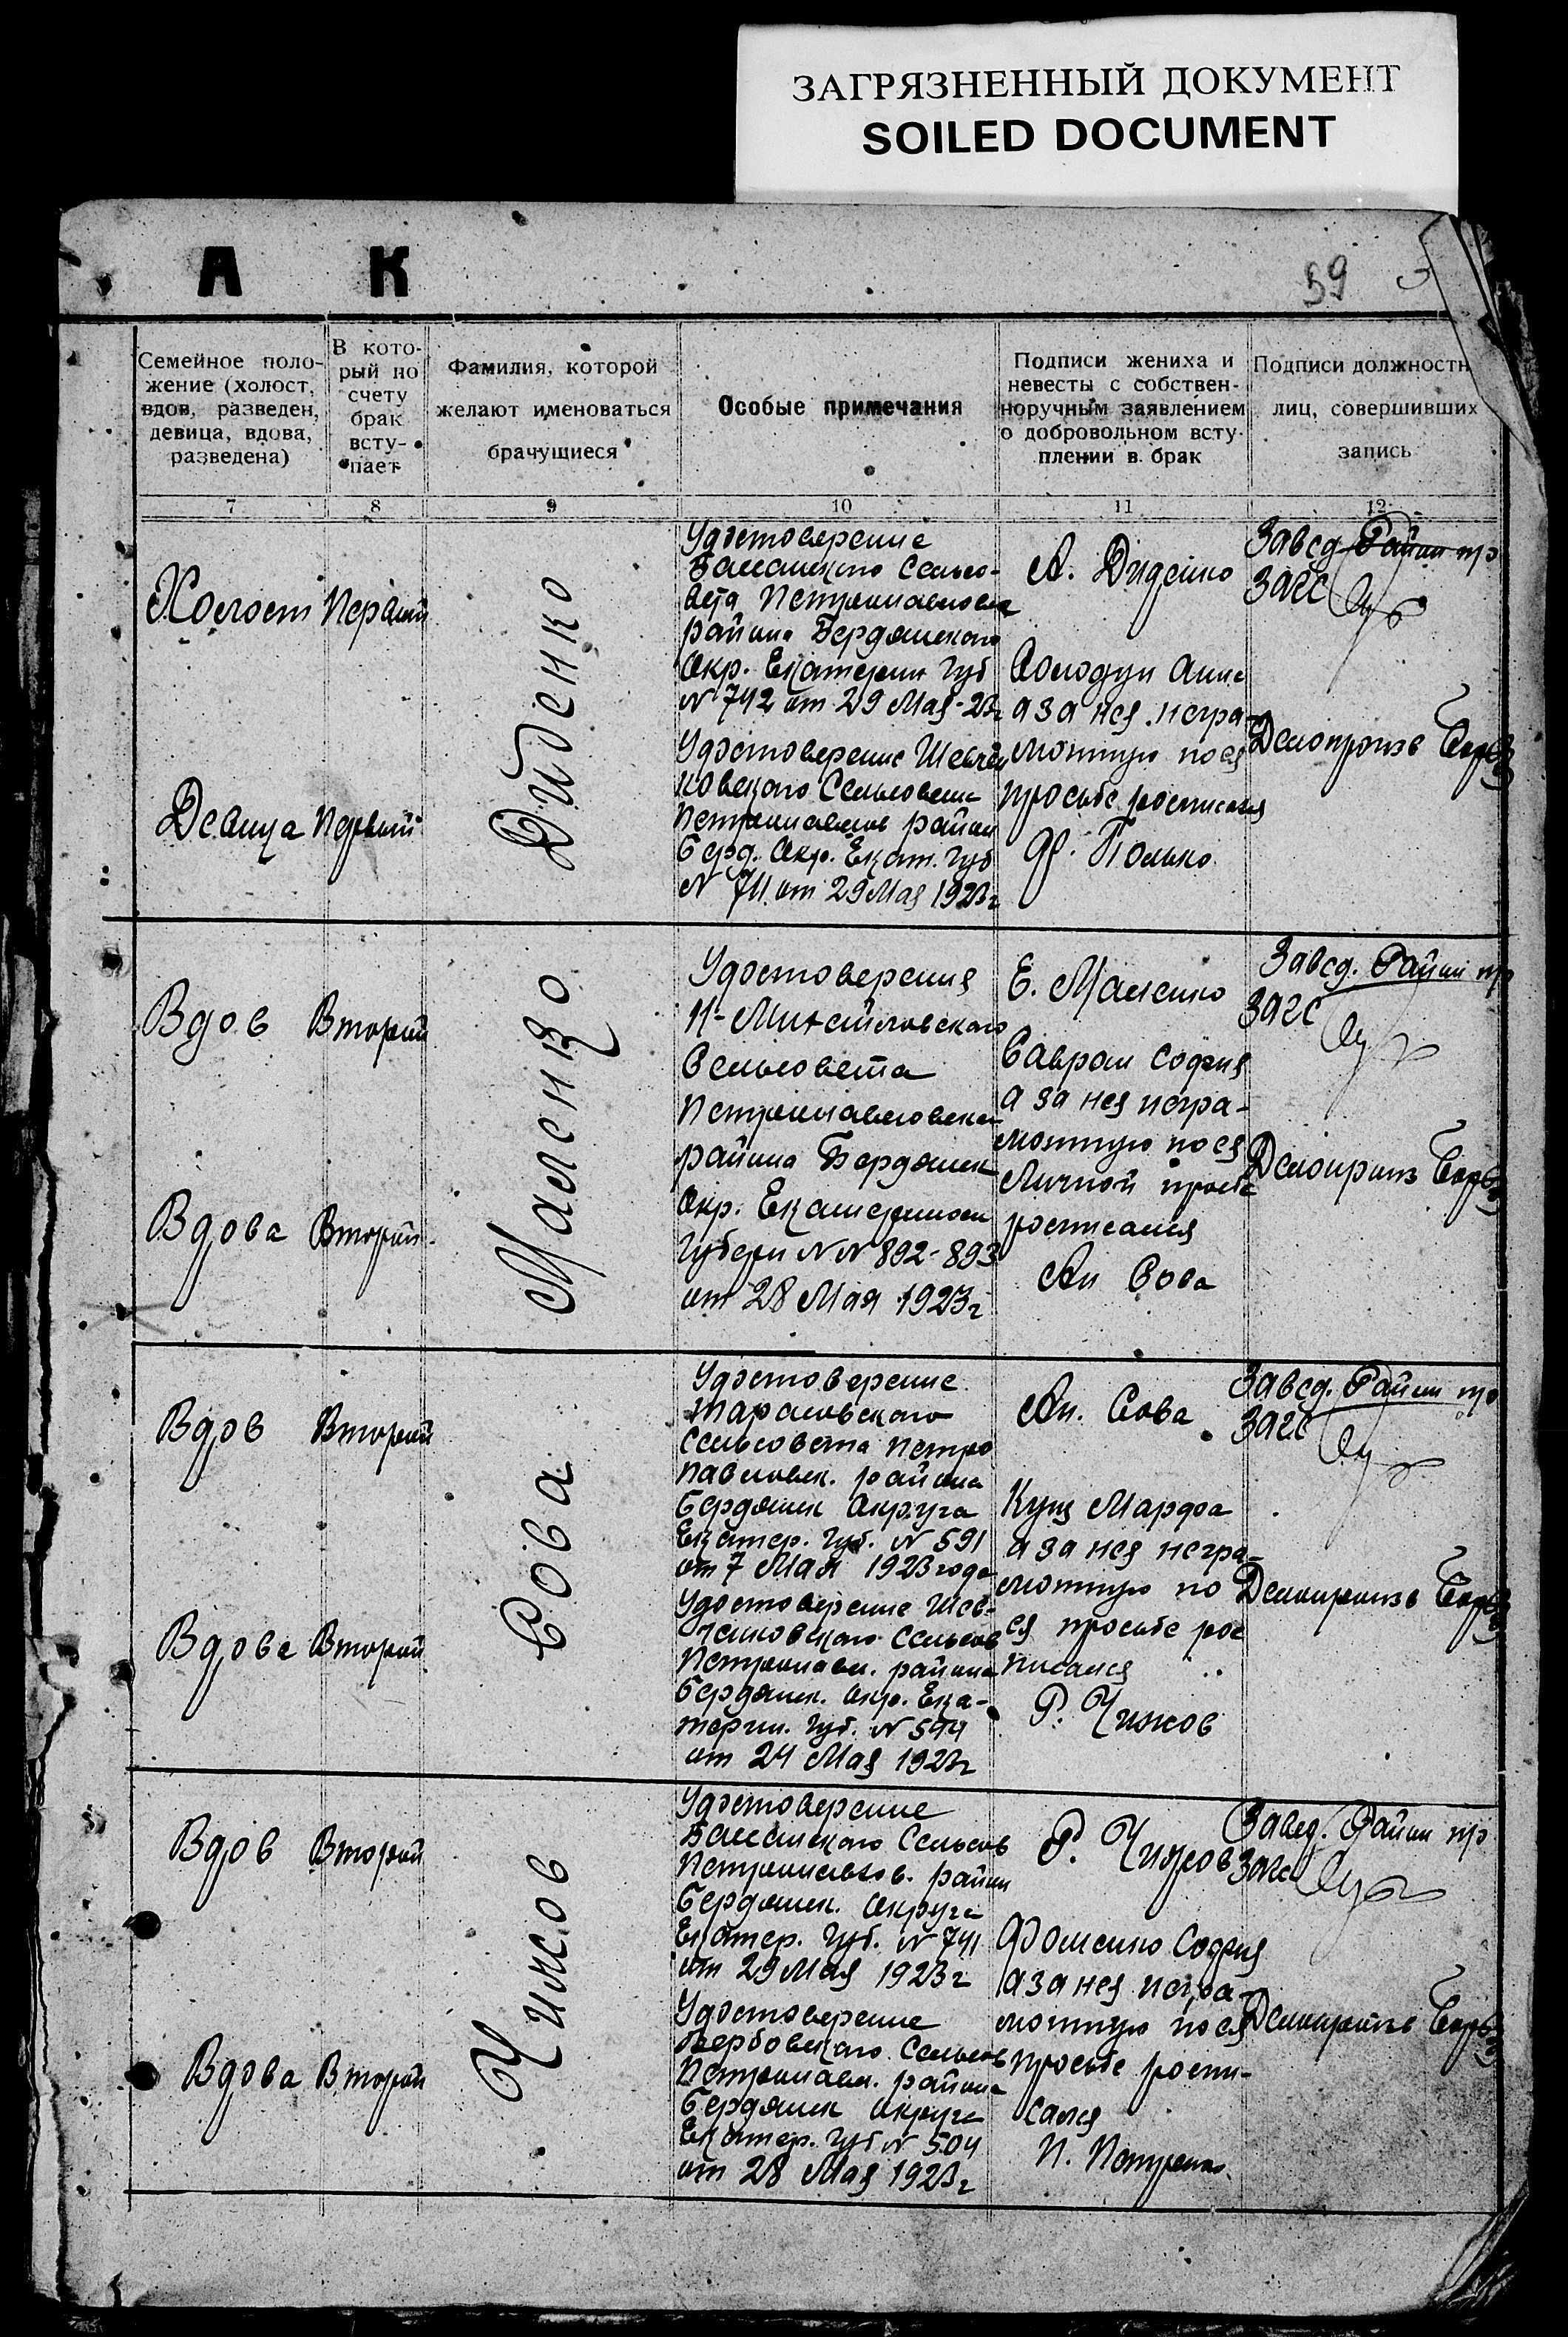 ЗАГРЯЗНЕННЫЙ ДОКУМЕНТ
SOILED DOCUMENT
А К
59
Семейное поло-
жение (холост,
вдов, разведен,
девица, вдова,
разведена)
В кото-
рый по
счету
брак
всту-
пает
Фамилия, которой
желают именоваться
брачущиеся
Особые примечания
Подписи жениха и
невесты с собствен-
норучным заявлением
о добровольном всту-
плении в брак
Подписи должностн
лиц, совершивших
запись
7 8 9 10 11 12
Холост Первый
Девица Первый
Диденко
Удостоверение
Сельсо-
вета Петропавловск
района Бердянского
Окр. Екатерин Губ
N 742 от 29 Мая-23г
Удостоверение Шевчен
ковского Сельсовета
Петропавлов район
Берд. Окр. Екат. Губ
N 711 от 29 Мая 1923г
А. Диденко
Солодун Анна
а за нея негра-
мотную по ея
просьбе росписался
Полько
Завед. Район
ЗАГС
Делопроизв
Вдов Вторый
Вдова Вторый
Маленко
Удостоверения
Н-Михайловского
Сельсовета
Петропавловск
района Бердянск
Окр. Екатеринос
Губерн NN 892-893
от 28 Мая 1923г
Е. Маленко
Савран София
а за нея негра-
мотную по ея
Личной просьбе
росписался
Ан Сова
Завед. Район
ЗАГС
Делопроизв
Вдов Вторый
Вдова Вторый
Сова
Удостоверение
Тарасовского
Сельсовета Петро
павловск. района
Бердянск Округа
Екатер. Губ. N 591
от 7 Мая 1923 года
Удостоверение Шев-
ченковского Сельсов
Петропавл. района
Бердянск. Окр. Ека-
терин. Губ. N 594
от 24 Мая 1923г
Ан. Сова
Кущ Марфа
а за нея негра-
мотную по
ея просьбе рос
писался
Р. Чижов
Завед. Район
ЗАГС
Делопроизв
Вдов Вторый
Вдова Вторый
Чижов
Удостоверение
Сельсов
Петропавлов. район
Бердянск. Округа
Екатер. Губ. N 741
от 29 Мая 1923г
Удостоверение
Вербовского Сельсов
Петропавл. района
Бердянск Округа
Екатер. Губ N 504
от 28 Мая 1923г
Р. Чижов
Фоменко София
а за нея негра-
мотную по ея
просьбе роспи-
сался
П. Петренко
Завед. Район
Загс
Делопроизв